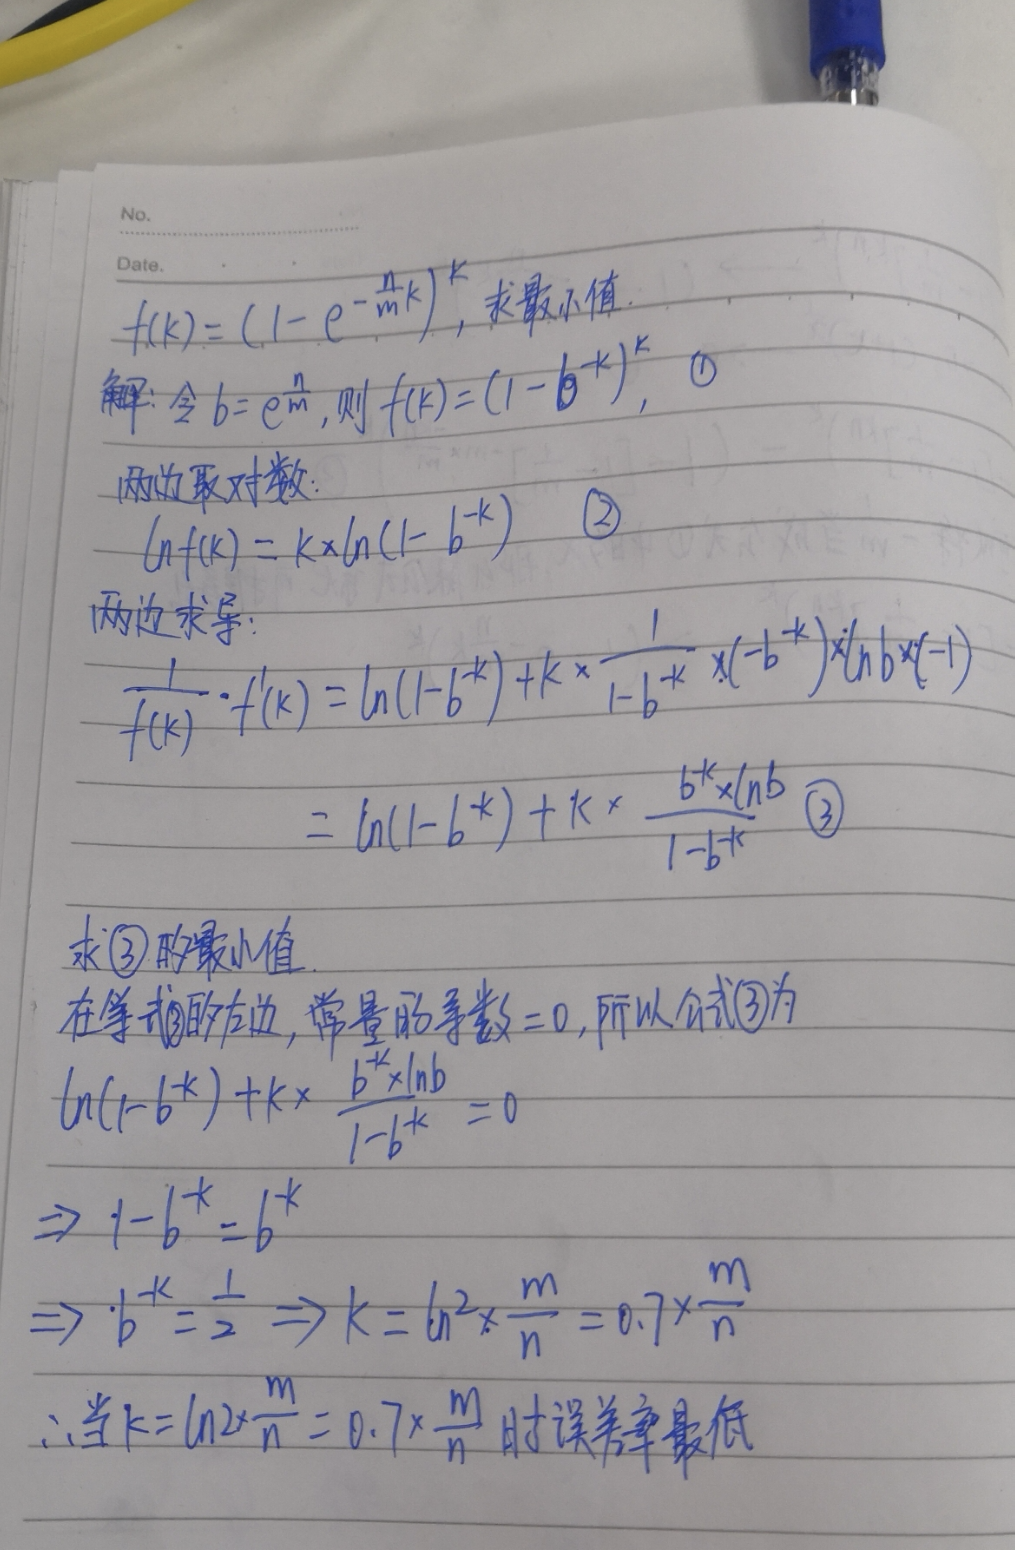 No.
Date.
f(k) = (1 - e^{-\frac{n}{m}k})^k, 求最小值.
解: 令 b = e^{\frac{n}{m}}, 则 f(k) = (1 - b^{-k})^k, ①
两边取对数:
ln f(k) = k × ln(1 - b^{-k}) ②
两边求导:
\frac{1}{f(k)} · f'(k) = ln(1-b^{-k}) + k × \frac{1}{1-b^{-k}} × (-b^{-k}) × ln b × (-1)
= ln(1-b^{-k}) + k × \frac{b^{-k} × ln b}{1-b^{-k}} ③
求③的最小值.
在等式③的左边, 常量的导数=0, 所以公式③为
ln(1-b^{-k}) + k × \frac{b^{-k} × ln b}{1-b^{-k}} = 0
⇒ 1-b^{-k} = b^{-k}
⇒ b^{-k} = \frac{1}{2} ⇒ k = ln2 × \frac{m}{n} = 0.7 × \frac{m}{n}
∴ 当 k = ln2 × \frac{m}{n} = 0.7 × \frac{m}{n} 时误差率最低